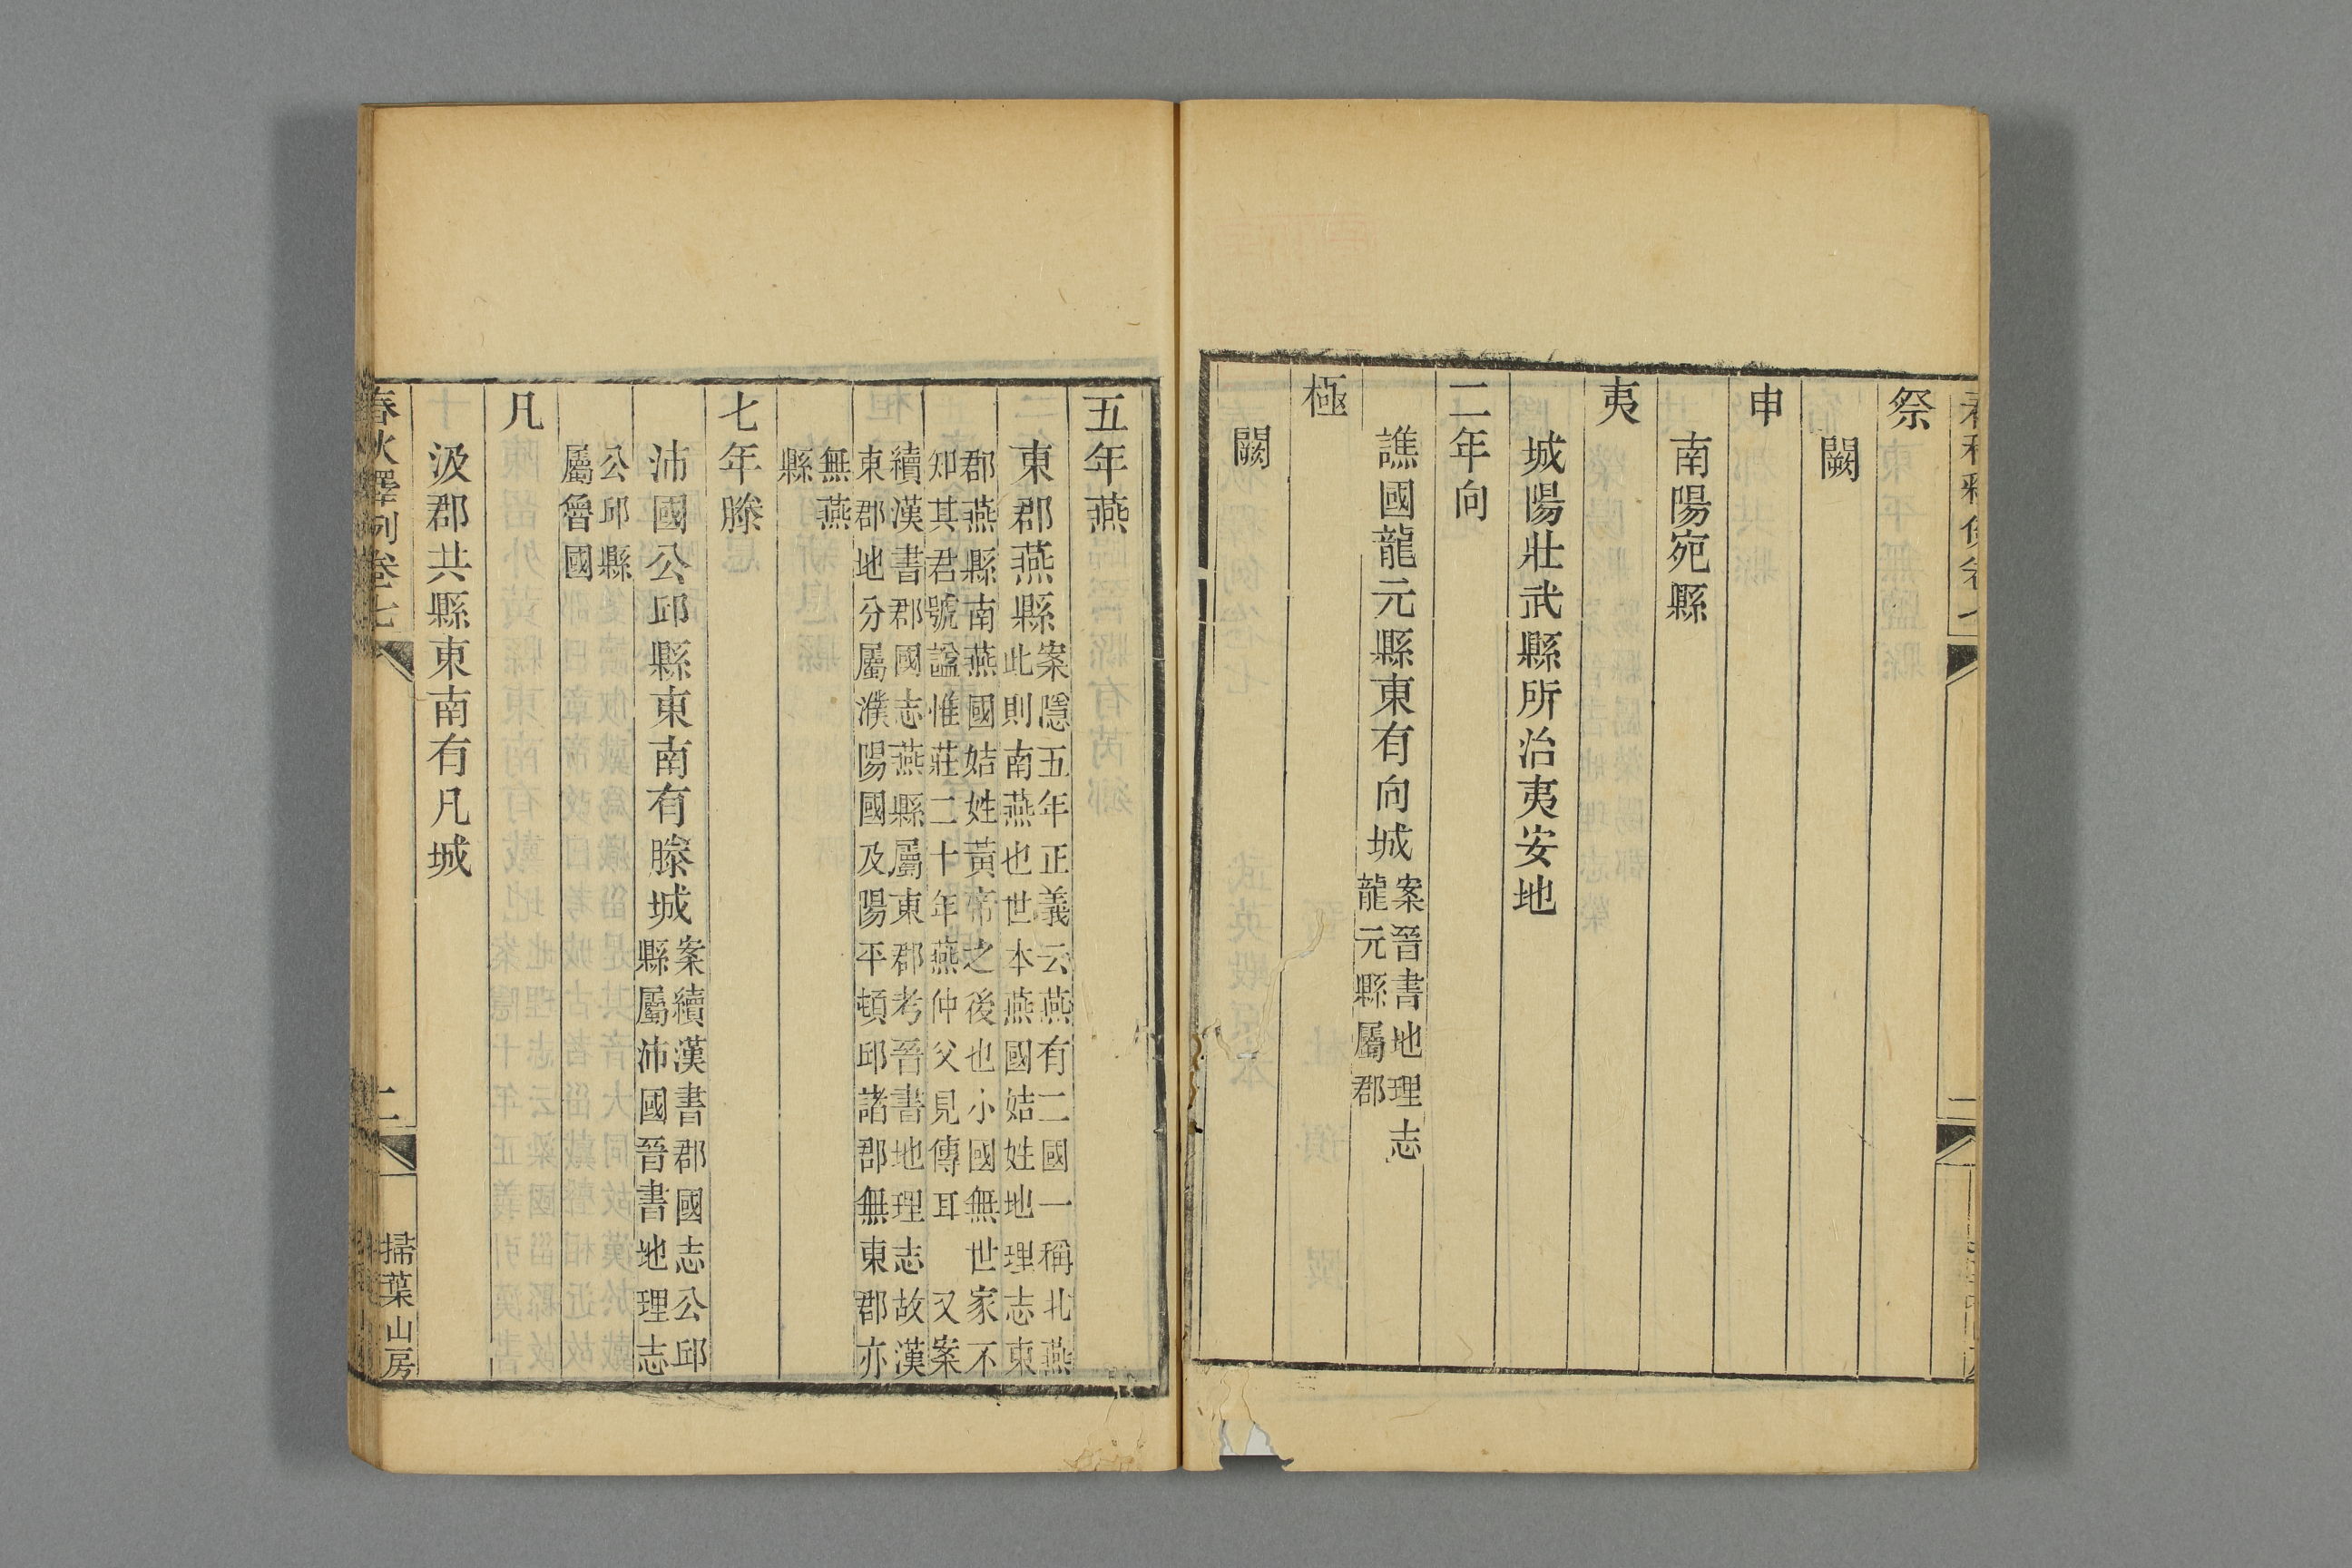 祭
闕
申
南陽宛縣
夷
城陽壯武縣所治夷安地
二年向
譙國龍元縣東有向城案晉書地理志
龍元縣屬郡
極
闕
五年燕
東郡燕縣案隱五年正義云燕有二國一稱北燕
此則南燕也世本燕國姞姓地理志東
郡燕縣南燕國姞姓黃帝之後也小國無世家不
知其君號謚惟莊二十年燕仲父見傳耳 又案
續漢書郡國志燕縣屬東郡考晉書地理志故漢
東郡地分屬濮陽國及陽平頓邱諸郡無東郡亦
無燕
縣
七年滕
沛國公邱縣東南有滕城案續漢書郡國志公邱
縣屬沛國晉書地理志
公邱縣
屬魯國
凡
汲郡共縣東南有凡城
春秋釋例卷七
二
掃葉山房